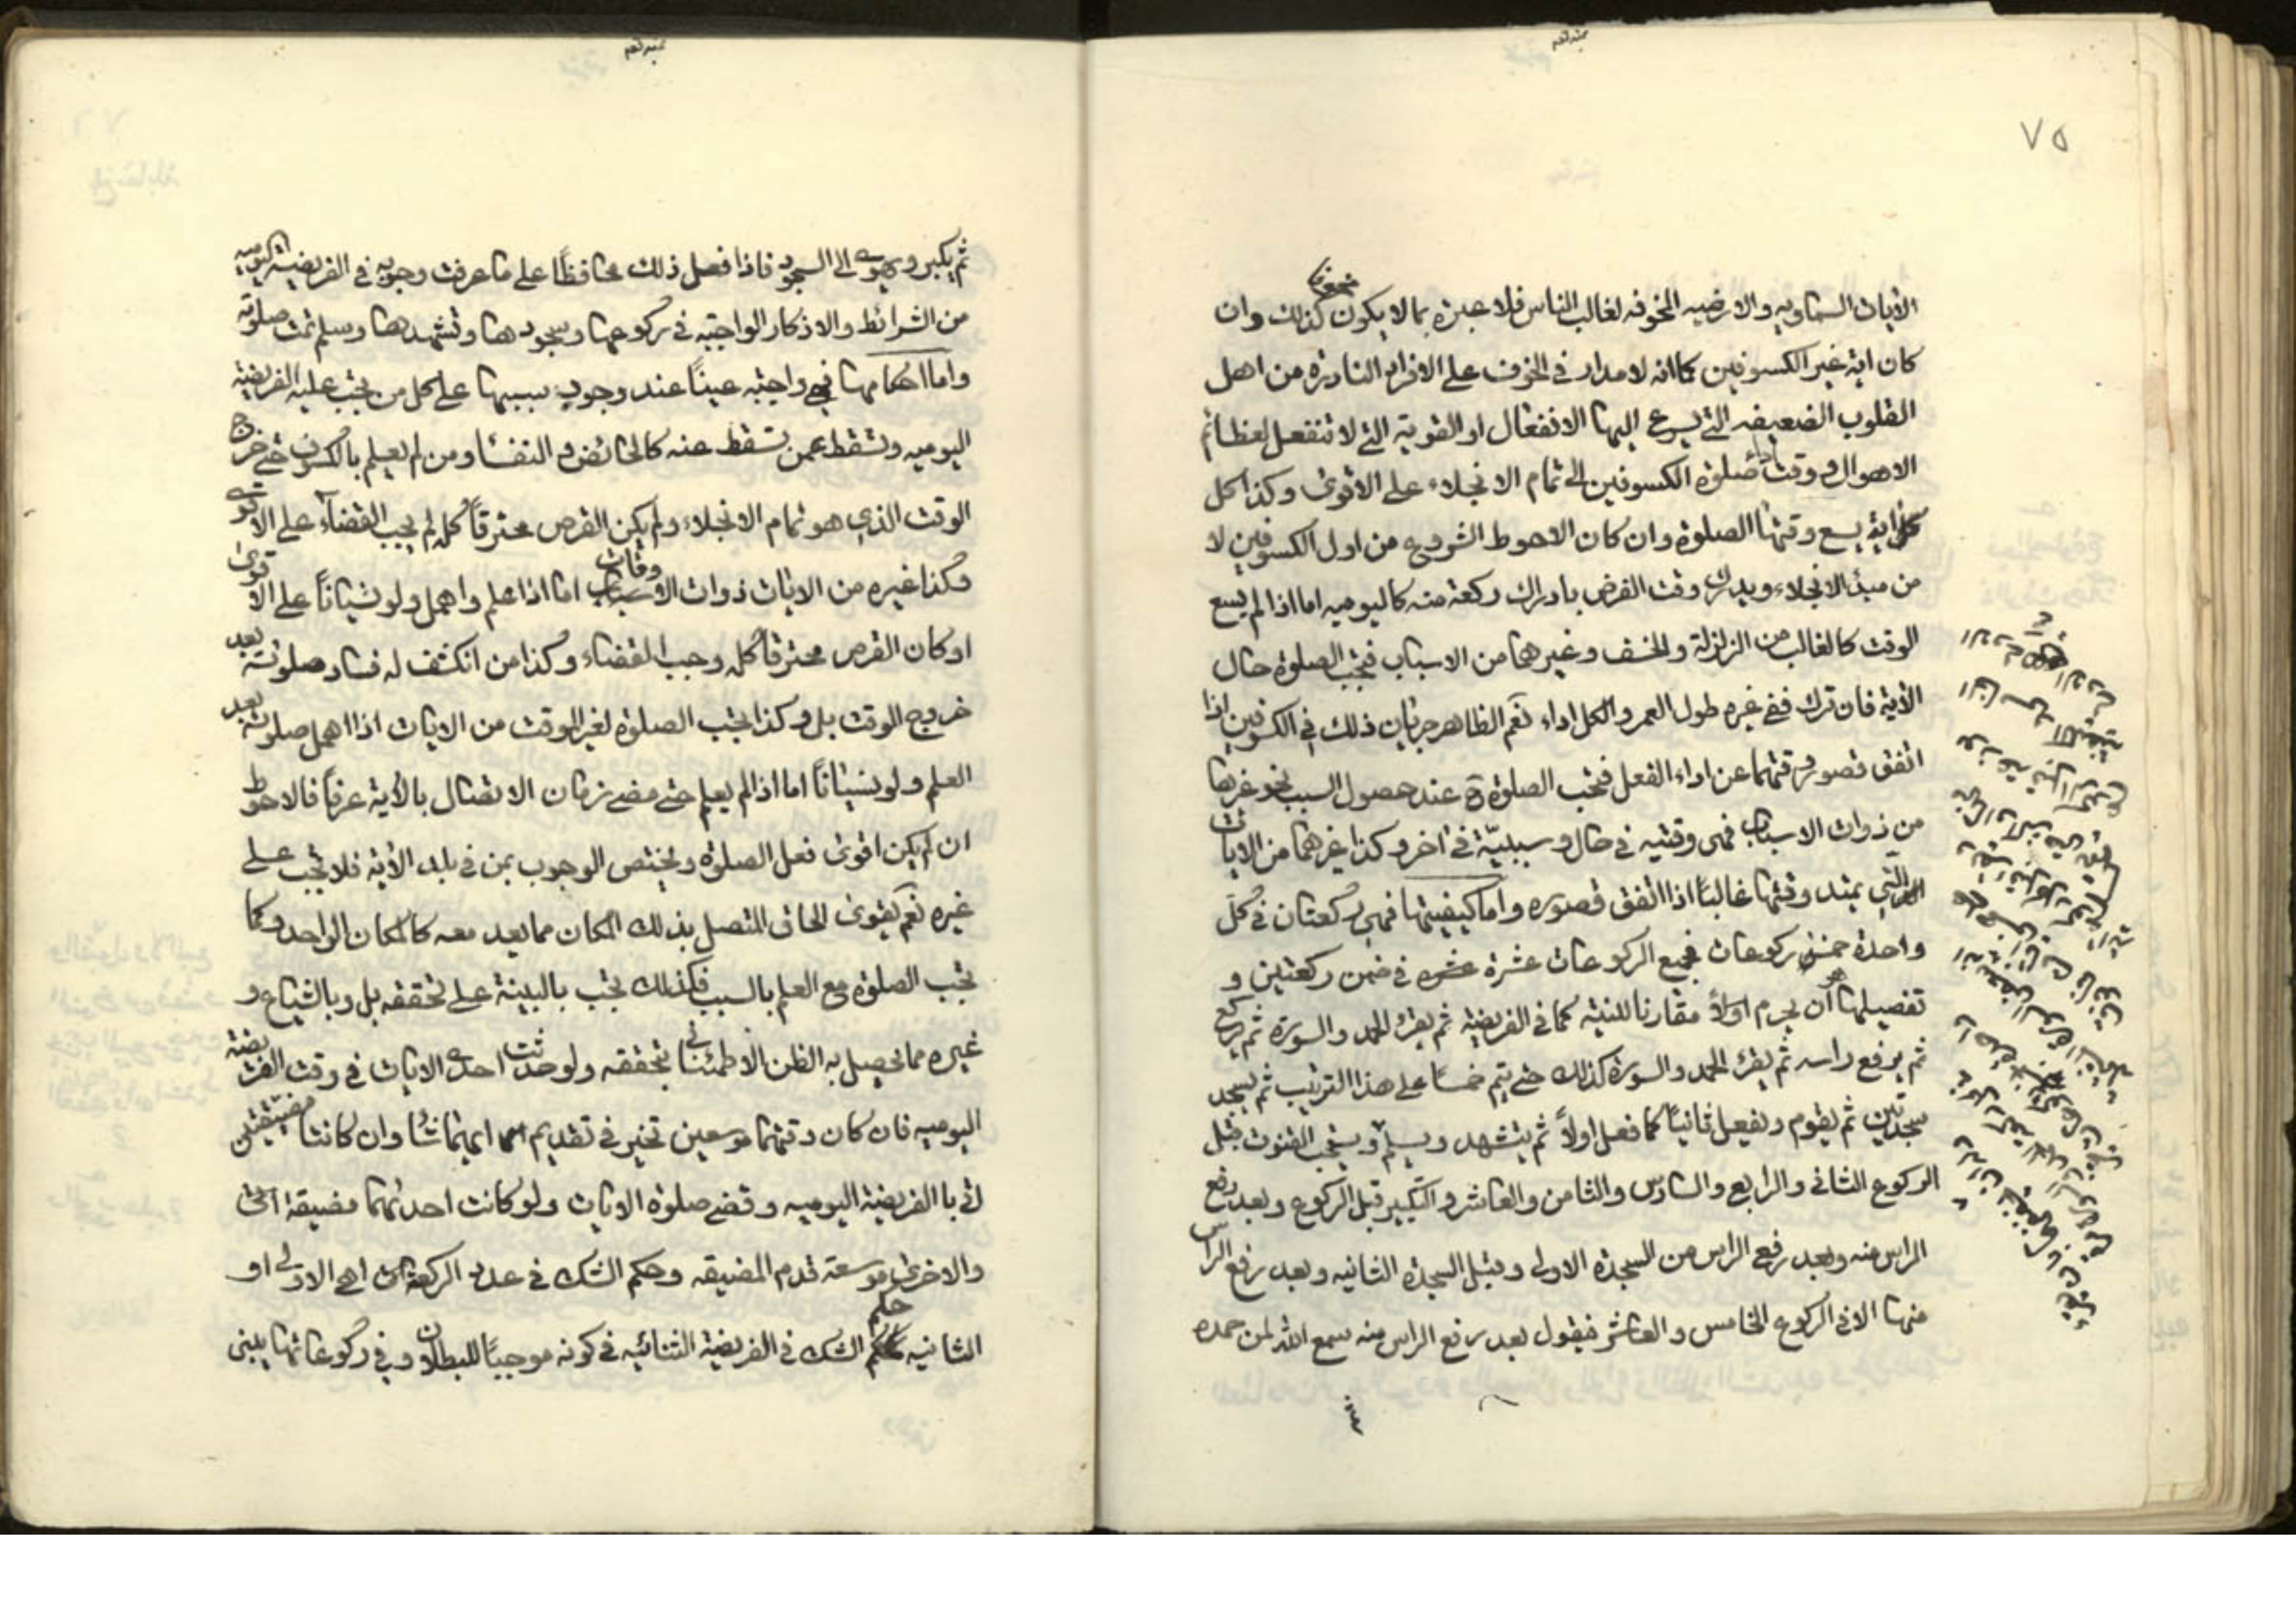 ٧٥
الآيات السماويه والارضيه المخوفه لغالب الناس فلا عبرة بما لا يكون كذلك وان
كان اية غير الكسوفين كما انه لا مدار في الخوف على الافراد النادرة من اهل
القلوب الضعيفه التي يسرع اليها الانفعال او القوية التي لا تنفعل لعظائم
الاهوال و وقت اداء صلوة الكسوفين الى تمام الانجلاء على الاقوى وكذا كل
اية يسع وقتها الصلوة وان كان الاحوط الشروع من اول الكسوفين لا
من مبدأ الانجلاء ويدرك وقت الفرض بادراك ركعة منه كاليوميه اما اذا لم يسع
الوقت كالغالب من الزلزلة والخسف وغيرهما من الاسباب فتجب الصلوة حال
الآية فان ترك ففي غيره طول العمر والكل اداء نعم الظاهر جريان ذلك في الكسوفين اذا
اتفق قصور وقتهما عن اداء الفعل فتجب الصلوة ح عند حصول السبب نحو غيرها
من ذوات الاسباب فهى وقتيه في حال و سببيّة في اخر وكذا غيرهما من الايات
التي يمتد وقتها غالبًا اذا اتفق قصوره واما كيفيتها فهى ركعتان في كل
واحدة خمس ركوعات فجميع الركوعات عشرة في ضمن ركعتين و
تفصيلها هو أن يحرم اولاً مقارنا للنية كما في الفريضة ثم يقرء الحمد والسورة ثم يركع
ثم يرفع راسه ثم يقرء الحمد والسورة كذلك حتى يتم خمسا على هذا الترتيب ثم يسجد
سجدتين ثم يقوم ويفعل ثانيًا كما فعل اولاً ثم يتشهد ويسلم ويستحب القنوت قبل
الركوع الثاني والرابع والسادس والثامن والعاشر و التكبير قبل الركوع وبعد رفع
الراس منه وبعد رفع الراس من السجدة الاولى وقبل السجدة الثانيه وبعد رفع الراس
منها الا في الركوع الخامس والعاشر فيقول بعد رفع الراس منه سمع الله لمن حمده
ثم يكبر ويهوى الى السجود فاذا فعل ذلك محافظًا على ما عرفت وجوبه في الفريضة اليوميه
من الشرائط والاذكار الواجبة في ركوعها وسجودها وتشهدها وسلم تمت صلوته
واما احكامها فهي واجبة عينًا عند وجوب سببها على كل من يجب عليه الفريضة
اليوميه وتسقط عمن تسقط عنه كالحائض و النفسا ومن لم يعلم بالكسوف حتى خرج
الوقت الذي هو تمام الانجلاء ولم يكن القرص محترقاً كله لم يجب القضآء على الاقوى
وكذا غيره من الايات ذوات الاوقات اما اذا علم واهمل ولو نسيانًا على الاقوى
او كان القرص محترقًا كله وجب القضاء وكذا من انكشف له فساد صلوته بعد
خروج الوقت بل وكذا يجب الصلوة لغير الموقت من الايات اذا اهمل صلوته بعد
العلم ولو نسيانًا اما اذا لم يعلم حتى مضى زمان الاتصال بالآية عرفًا فالاحوط
ان لم يكن اقوى فعل الصلوة ويختص الوجوب بمن في بلد الآية فلا تجب على
غيره نعم يقوى الحاق المتصل بذلك المكان مما يعد معه كالمكان الواحد وكما
تجب الصلوة مع العلم بالسبب فكذلك تجب بالبينة على تحققه بل وبالشياع و
غيره مما يحصل به الظن الاطمئناني بتحققه ولو حدثت احدى الايات في وقت الفريضة
اليوميه فان كان وقتهما موسعين تخير في تقديم ايهما شا وان كانتا مضيقتين
اتى با الفريضة اليوميه وقضى صلوة الايات ولو كانت احدىهما مضيقة
والاخرى موسعة قدم المضيقه وحكم الشك في عدد الركعة اهى الاولى او
الثانيه حكم الشك في الفريضة الثنائيه في كونه موجبًا للبطلان و في ركوعاتها يبنى